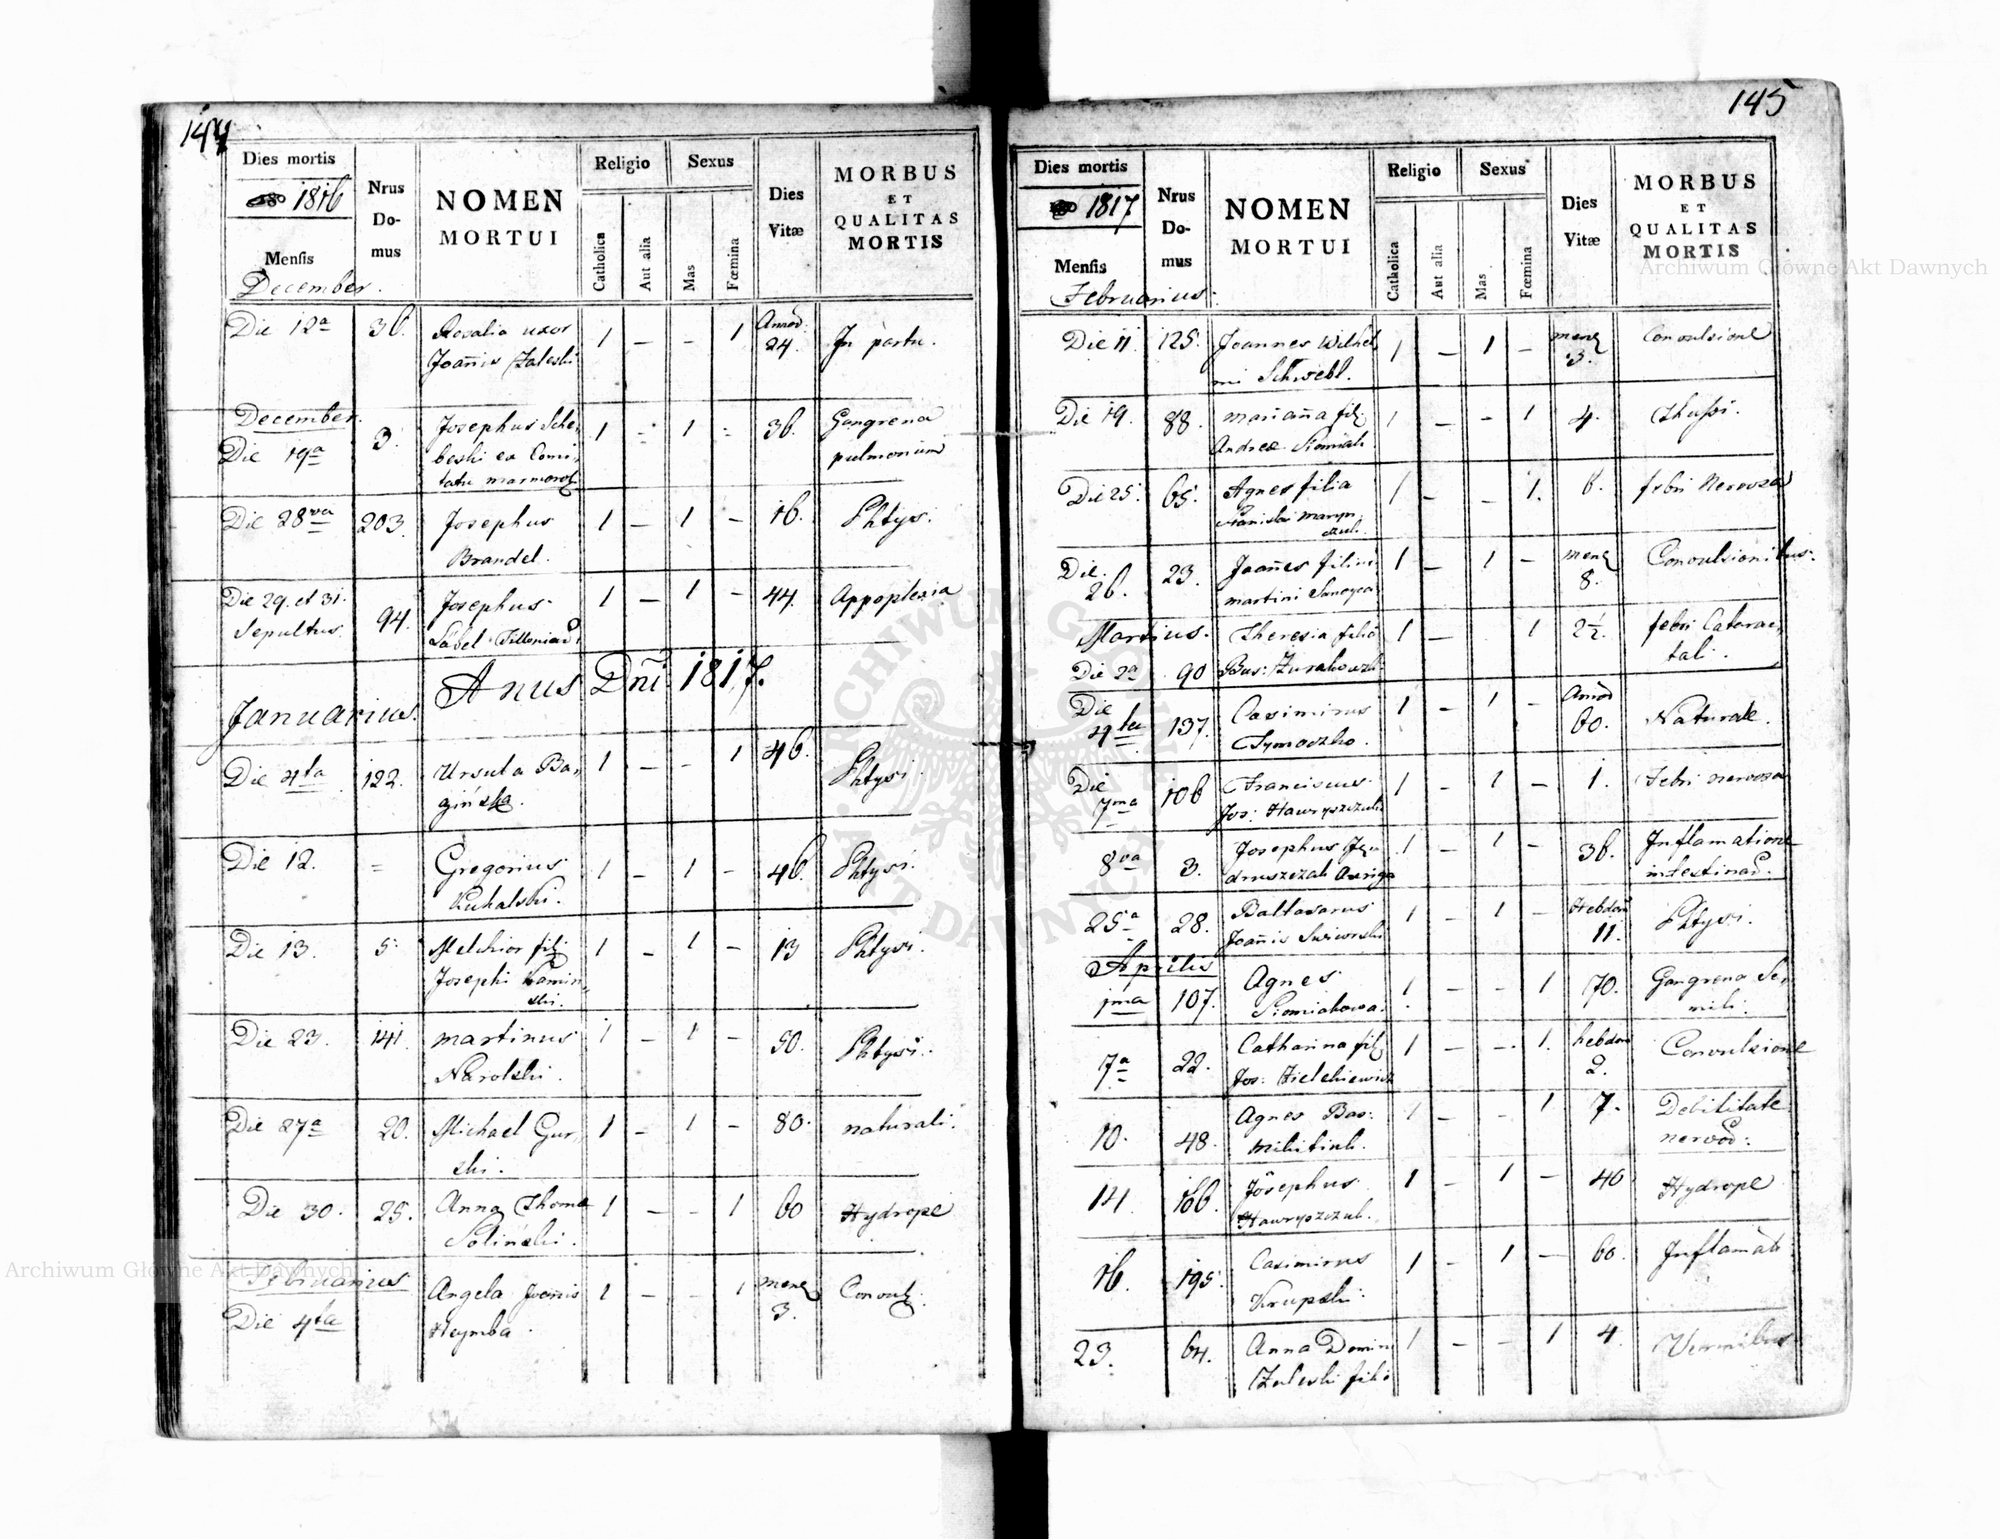 144
Dies mortis
1816
Mensis
December.
Nrus
Do-
mus
NOMEN
MORTUI
Religio
Catholica
Aut alia
Sexus
Mas
Fœmina
Dies
Vitæ
MORBUS
ET
QUALITAS
MORTIS
Die 12a 36. Rosalia uxor 1 — - 1 24. In partu.
Joañis Zaleski
December.
Die 19a 3. Josephus 1 1 36. Gangrena
pulmonum
Die 28va 203. Josephus 1 — 1 – 16. Phtysi.
Brandel.
Die 29. et 31. 94. Josephus 1 — 1 – 44. Appoplexia
Sepultus.
Anus Dñi 1817.
Januarius.
Die 4ta 122. Ursula Ba, 1 — - 1 46. Phtysi.
gińska.
Die 12. = Gregorius 1 – 1 – 46. Phtysi.
Kuhalski.
Die 13. 5. Melchior fil: 1 – 1 – 13 Phtysi.
Josephi Kamin,
ski.
Die 23. 141. Martinus 1 – 1 – 50. Phtysi.
Narolski.
Die 27a 20. Michael Gur, 1 – 1 – 80. naturali.
ski.
Die 30. 25. Anna Thoma 1 – – 1 60 Hydrope
Soliński.
Februarius
Die 4ta Angela Joañis 1 – – 1 3. Convulz.
Heymba.
145
Dies mortis
1817
Mensis
Februarius.
Nrus
Do-
mus
NOMEN
MORTUI
Religio
Catholica
Aut alia
Sexus
Mas
Fœmina
Dies
Vitæ
MORBUS
ET
QUALITAS
MORTIS
Die 11 125. Joannes Wilhel, 1 – 1 – 3. Convulsione
mi Schwebl.
Die 19. 88. Mariañna fil: 1 – - 1 4. Thussi.
Andreæ Siomiak.
Die 25. 65. Agnes filia 1 – – 1. 6. febri Nervosa
Stanislai
Die 26. 23. Joañes filius 1 – 1 – 8. Convulsionibus.
martini
Martius. Theresia filia 1 – 1 2½. febri Catarac,
Die 2a 90 tali.
Die 4ta 137. Casimirus 1 – 1 – 60. Naturale.
Tymoczko.
Die 7ma 106 Franciscus 1 – 1 – 1. Febri nervosa
Jos: Hawryszczuk
8va 3. Josephus 1 – 1 – 36. Inflamatione
25a 28. Baltasarus 1 – 1 – 11. Phtysi.
Joañis
Aprilis
1ma 107. Agnes 1 – – 1 70. Gangrena Se,
Siomiakowa. nili.
7a 22. Catharina fil: 1 – – 1. 2. Convulsione
Jos: Zielkiewicz
10. 48. Agnes Bas: 1 – – 1 7. Debilitate
14. 106. Josephus 1 – 1 – 40 Hydrope
Hawryszczuk.
16. 195. Casimirus 1 – 1 – 60. Inflamàti.
Krupski.
23. 64. Anna Domin 1 – – 1 4. Vermibus
Zaleski filia
Archiwum Główne Akt Dawnych
Archiwum Główne Akt Dawnych
ARCHIWUM GŁÓWNE AKT DAWNYCH